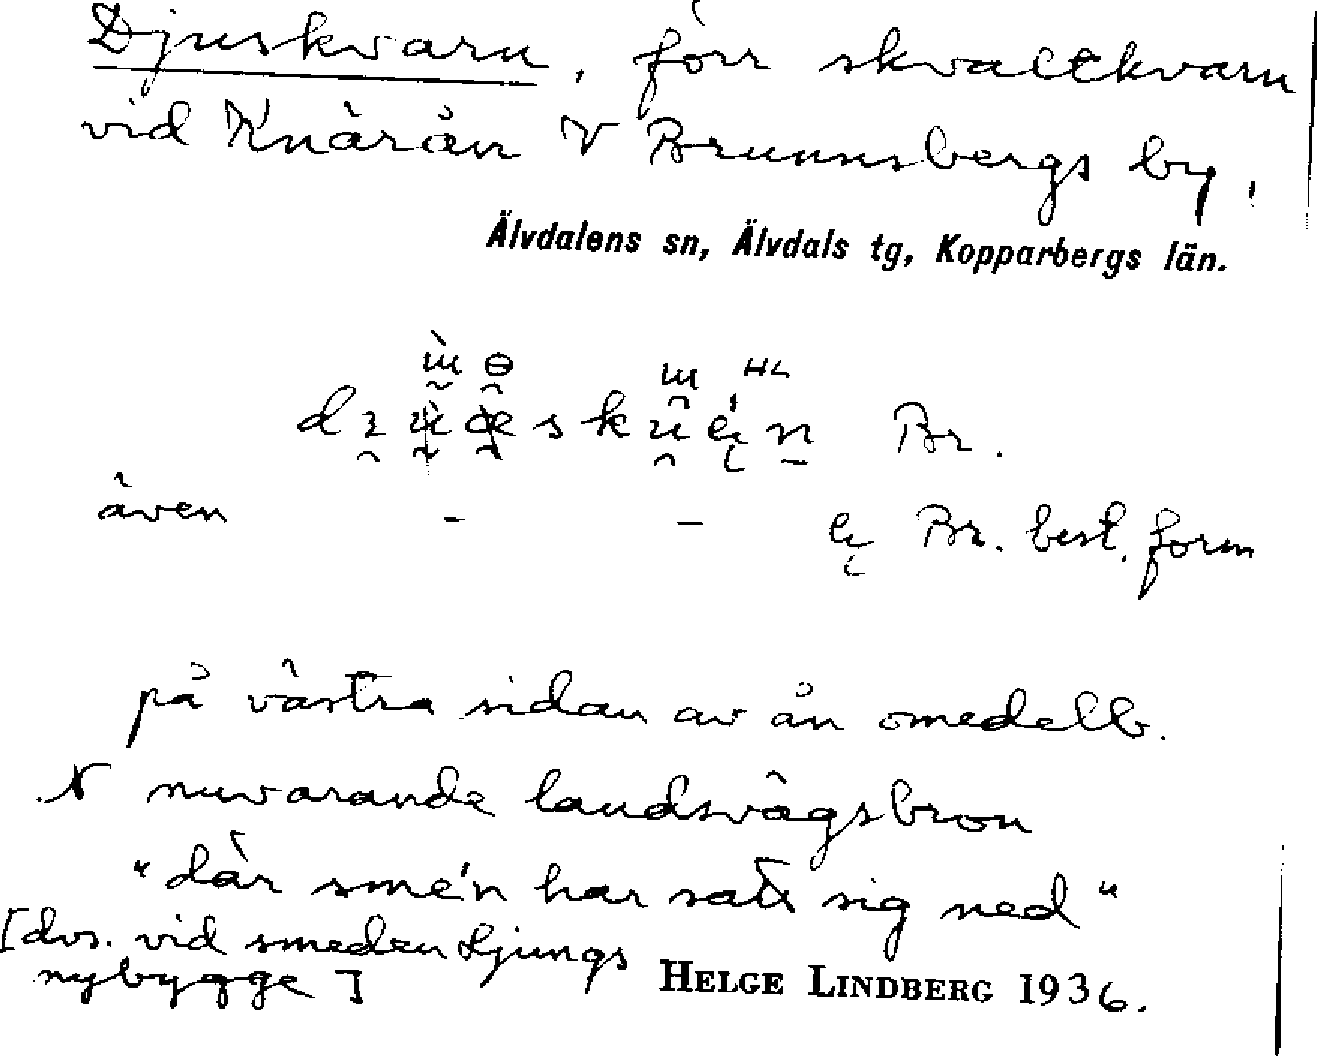 Djuskvarn, förr skvaltkvarn
vid Knärån V Brunnsbergs by,
Älvdalens sn, Älvdals tg, Kopparbergs län.
Br.
även - - Br. best. form
på västra sidan av ån omedelb.
N nuvarande landsvägsbron
"där sme'n har satt sig ned"
[dvs. vid smeden Ljungs
nybygge]
HELGE LINDBERG 1936.